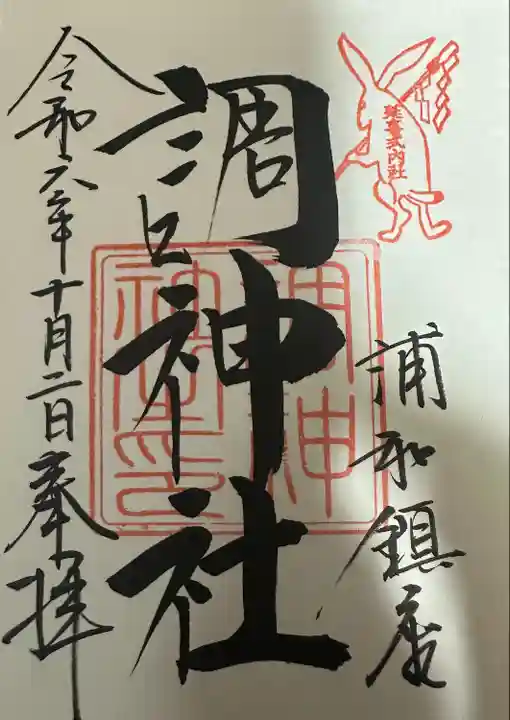 延喜式内社
浦和鎮座
調神社
調神社之印
令和六年十月二日奉拝